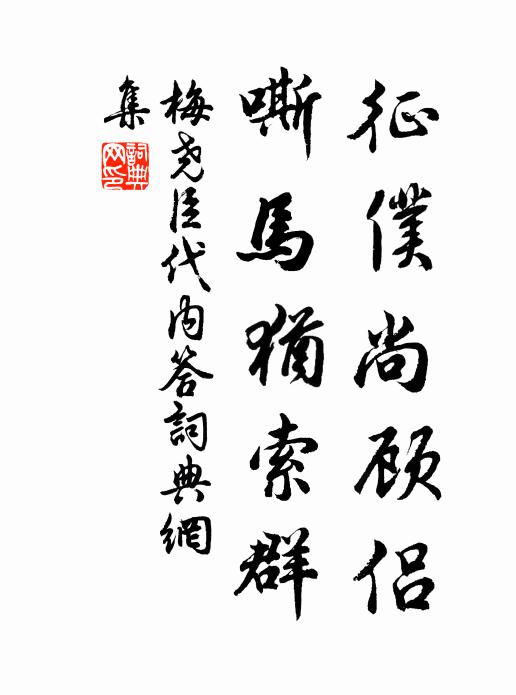 征僕尚顾侣
嘶馬猶索群
梅尧臣代内答詞典網
集
詞典網印